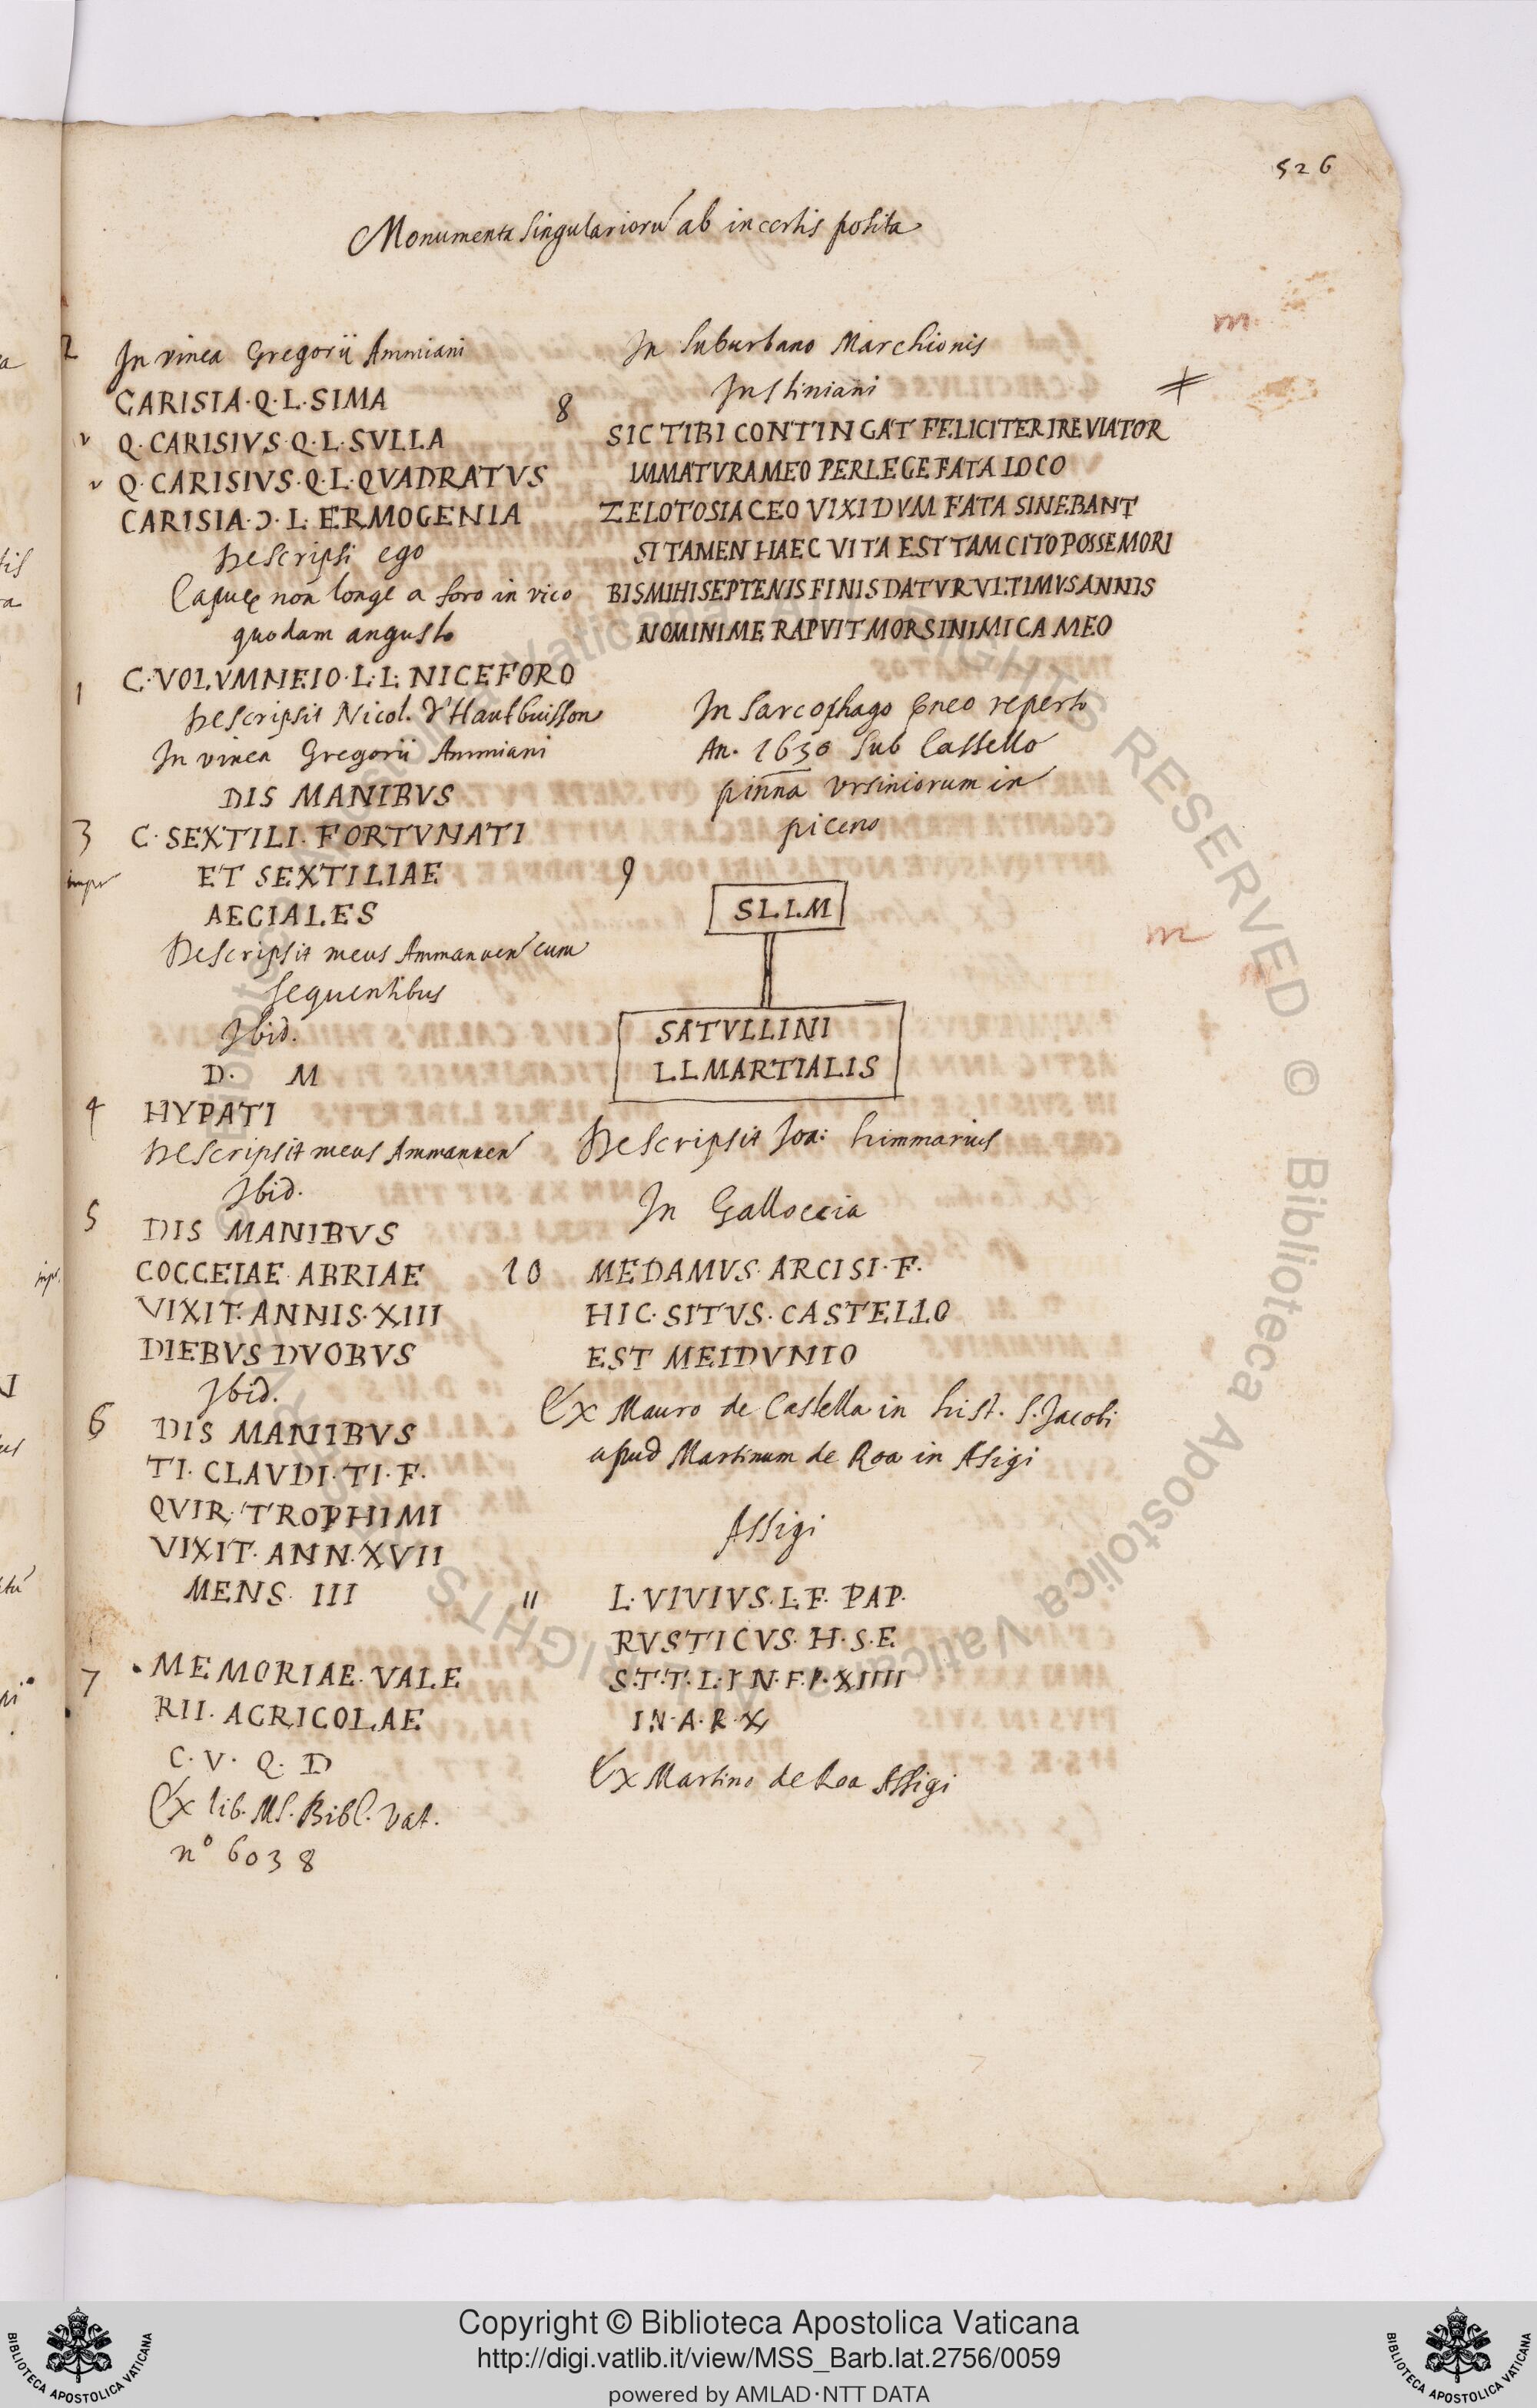 526
Monumenta singulariorũ ab incertis posita
2 In vinea Gregorii Ammiani
CARISIA·Q·L·SIMA
v Q·CARISIVS·Q·L·SVLLA
v Q·CARISIVS·Q·L·QVADRATVS
CARISIA·Ɔ·L·ERMOGENIA
Descripsi ego
Capuę non longe a foro in vico
quodam angusto
1 C·VOLVMNEIO·L·L·NICEFORO
Descripsit Nicol. d'Hautbuisson
In vinea Gregorii Ammiani
DIS MANIBVS
3 C·SEXTILI·FORTVNATI
impr ET SEXTILIAE
AECIALES
Descripsit meus Ammanuen cum
sequentibus
Ibid.
D. M
4 HYPATI
Descripsit meus Ammanuen
Ibid.
5 DIS MANIBVS
impr. COCCEIAE ABRIAE
VIXIT·ANNIS·XIII
DIEBVS DVOBVS
Ibid.
6 DIS MANIBVS
TI·CLAVDI·TI·F.
QVIR·TROPHIMI
VIXIT·ANN·XVII
MENS·III
7 MEMORIAE·VALE
RII·AGRICOLAE
C·V·Q·D
Ex lib. MS. Bibl. Vat.
n° 6038
In suburbano Marchionis
Justiniani
m
8 SIC TIBI CONTINGAT FELICITER IRE VIATOR
IMMATVRA MEO PERLEGE FATA LOCO
ZELOTOSIACEO VIXI DVM FATA SINEBANT
SI TAMEN HAEC VITA EST TAM CITO POSSE MORI
BIS MIHI SEPTENIS FINIS DATVR VLTIMVS ANNIS
NOMINI ME RAPVIT MORS INIMICA MEO
In sarcophago ęneo reperto
An. 1630 sub Castello
pinna Vrsiniorum in
piceno
m
9 SLLM
SATVLLINI
LLMARTIALIS
Descripsit Joa: himmarius
In Galloecia
10 MEDAMVS·ARCISI·F.
HIC·SITVS·CASTELLO
EST MEIDVNIO
Ex Mauro de Castella in hist. S. Jacobi
apud Martinum de Roa in Asigi
Assigi
11 L·VIVIVS·L·F·PAP.
RVSTICVS·H·S·E
S·T·T·L·IN·F·P·XIIII
IN·A·R·X
Ex Martino de Roa Assigi
Copyright © Biblioteca Apostolica Vaticana
http://digi.vatlib.it/view/MSS_Barb.lat.2756/0059
powered by AMLAD·NTT DATA
BIBLIOTECA APOSTOLICA VATICANA
BIBLIOTECA APOSTOLICA VATICANA